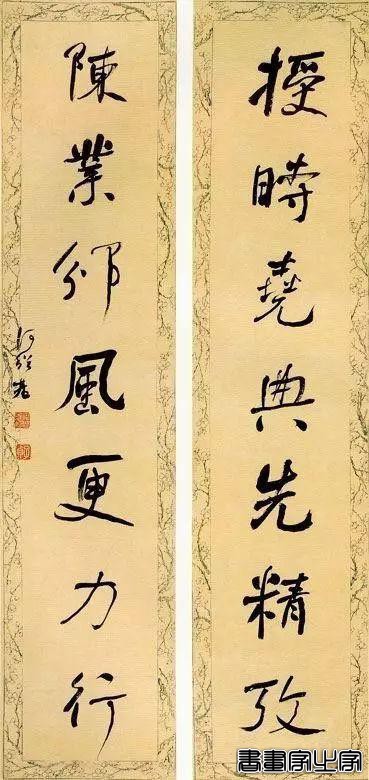 授時堯典先精攷
陳業邠風更力行
書畫家之家